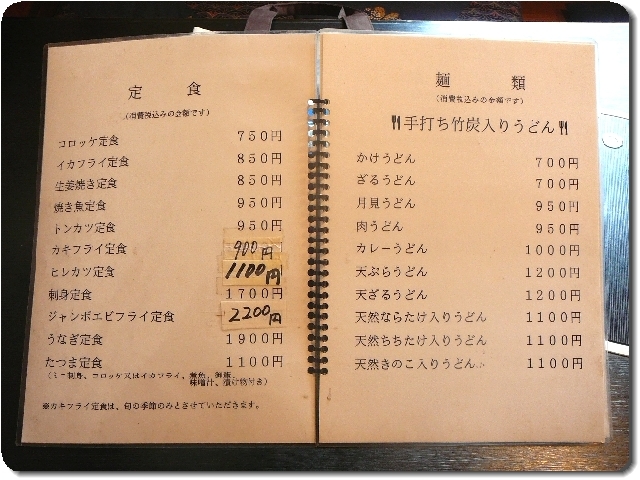 定 食
(消費税込みの金額です)
コロッケ定食 750円
イカフライ定食 850円
生姜焼き定食 850円
焼き魚定食 950円
トンカツ定食 950円
カキフライ定食 900円
ヒレカツ定食 1100円
刺身定食 1700円
ジャンボエビフライ定食 2200円
うなぎ定食 1900円
たつま定食 1100円
(ミニ刺身、コロッケ又はイカフライ、煮魚、御飯、
味噌汁、漬け物付き)
※カキフライ定食は、旬の季節のみとさせていただきます。
麺 類
(消費税込みの金額です)
手打ち竹炭入りうどん
かけうどん 700円
ざるうどん 700円
月見うどん 950円
肉うどん 950円
カレーうどん 1000円
天ぷらうどん 1200円
天ざるうどん 1200円
天然ならたけ入りうどん 1100円
天然ちちたけ入りうどん 1100円
天然きのこ入りうどん 1100円